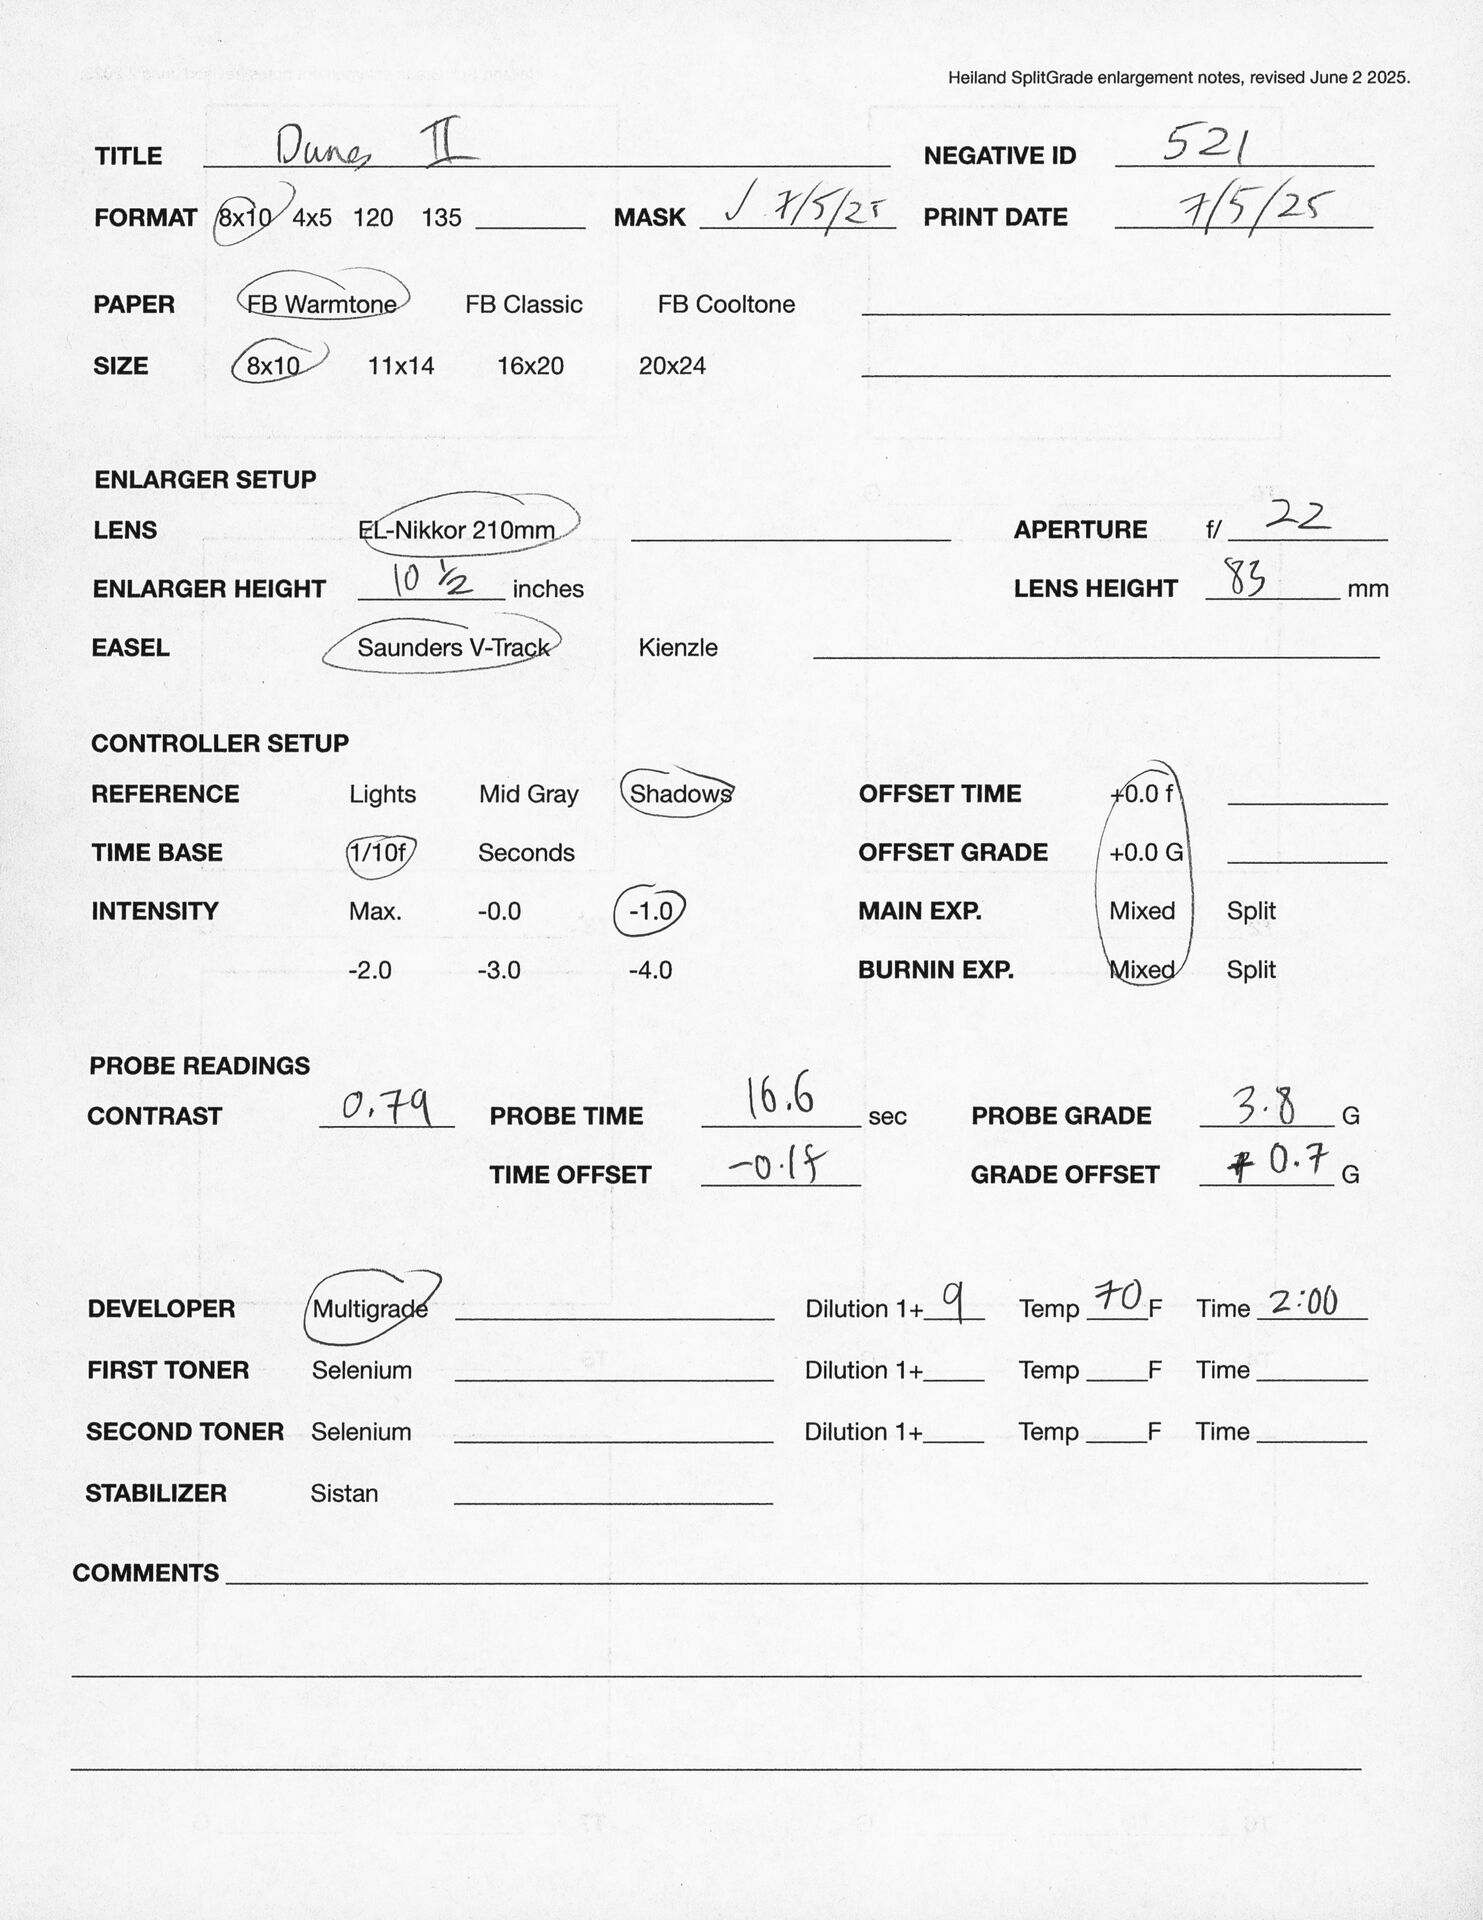 Heiland SplitGrade enlargement notes, revised June 2 2025.
TITLE Dunes II NEGATIVE ID 521
FORMAT 8x10 4x5 120 135 MASK ✓ 7/5/25 PRINT DATE 7/5/25
PAPER FB Warmtone FB Classic FB Cooltone
SIZE 8x10 11x14 16x20 20x24
ENLARGER SETUP
LENS EL-Nikkor 210mm APERTURE f/ 22
ENLARGER HEIGHT 10 1/2 inches LENS HEIGHT 83 mm
EASEL Saunders V-Track Kienzle
CONTROLLER SETUP
REFERENCE Lights Mid Gray Shadows OFFSET TIME +0.0 f
TIME BASE 1/10f Seconds OFFSET GRADE +0.0 G
INTENSITY Max. -0.0 -1.0 MAIN EXP. Mixed Split
-2.0 -3.0 -4.0 BURNIN EXP. Mixed Split
PROBE READINGS
CONTRAST 0.79 PROBE TIME 16.6 sec PROBE GRADE 3.8 G
TIME OFFSET -0.1f GRADE OFFSET + 0.7 G
DEVELOPER Multigrade Dilution 1+ 9 Temp 70 F Time 2:00
FIRST TONER Selenium Dilution 1+ Temp F Time
SECOND TONER Selenium Dilution 1+ Temp F Time
STABILIZER Sistan
COMMENTS